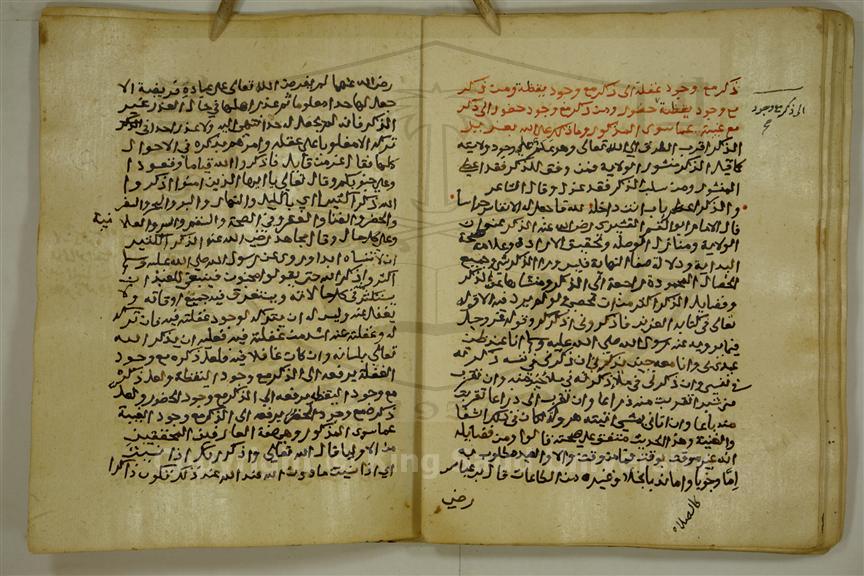 ذكر مع وجود غفلة الى ذكر مع وجود يقظة ومن ذكر
مع وجود يقظة الى ذكر مع وجود حضور ومن ذكر مع وجود حضور الى ذكر
مع غيبة عما سوى المذكور وما ذلك على الله بعزيز
الذكر اقرب الطرق الى الله تعالى وهو علم على وجود ولايته
كما قيل الذكر منشور الولاية فمن وفق للذكر فقد اعطي
المنشور ومن سلب الذكر فقد عزل وقال الشاعر
والذكر اعظم باب انت داخله لله فاجعل له الانفاس حراسا
قال الامام ابو القسم القشيري رضي الله عنه الذكر عنوان
الولاية ومنار الوصلة وتحقيق الارادة وعلامة صحة
البداية ودلالة صفا النهاية فليس ورا الذكر شي وجميع
الخصال المحمودة راجعة الى الذكر ومنشاها عن الذكر
وفضايل الذكر اكثر من ان تحصى ولو لم يرد فيه الا قوله
تعالى في كتابه العزيز فاذكروني اذكركم وقوله عز وجل
فيما يرويه عنه رسول الله صلى الله عليه وسلم انا عند ظن
عبدي بي وانا معه حين يذكرني ان ذكرني في نفسه ذكرته
في نفسي وان ذكرني في ملا ذكرته في ملا خير منه وان تقرب
مني شبرا تقربت منه ذراعا وان تقرب الي ذراعا تقربت
منه باعا وان اتاني يمشي اتيته هرولة لكان في ذلك اكتفا
والغنية وهذا الحديث متفق على صحته قالوا ومن فضايله
انه غير موقت بوقت فما من وقت الا والعبد مطلوب به
اما وجوبا واما ندبا بخلاف غيره من الطاعات قال ابن عباس
رضي
كالصلاة
الى ذكر مع وجود
رضي الله عنهما لم يفرض الله تعالى على عباده فريضة الا
جعل لها حدا معلوما ثم عذر اهلها في حال العذر غير
الذكر فانه لم يجعل له حدا ينتهي اليه ولا عذر احدا في
تركه الا مغلوبا على عقله وامرهم بذكره في الاحوال
كلها فقال عز من قايل فاذكروا الله قياما وقعودا
وعلى جنوبكم وقال تعالى يا ايها الذين امنوا اذكروا
الله ذكرا كثيرا اي بالليل والنهار وفي البر والبحر والسفر
والحضر والغنا والفقر وفي الصحة والسقم والسر والعلا نية
وعلى كل حال وقال مجاهد رضي الله عنه الذكر الكثير
ان لا تنساه ابدا وروي عن رسول الله صلى الله عليه وسلم
اكثروا ذكر الله حتى يقولوا مجنون فينبغي للعبد ان
يستكثر منه في كل حالاته ويستغرق فيه جميع اوقاته ولا
يغفل عنه وليس له ان يتركه لوجود غفلته فيه فان تركه
له وغفلته عنه اشد من غفلته فيه فعليه ان يذكر الله
تعالى بلسانه وان كان غافلا فيه فلعل ذكره مع وجود
الغفلة يرفعه الى الذكر مع وجود اليقظة ولعل ذكره
مع وجود اليقظة يرفعه الى الذكر مع وجود الحضور ولعل
ذكره مع وجود الحضور يرفعه الى الذكر مع وجود الغيبة
عما سوى المذكور وهي صفة العارفين المحققين
من الاوليا قال الله تعالى واذكر ربك اذا نسيت
اي اذا نسيت ما دون الله عند ذلك تكون ذاكرا